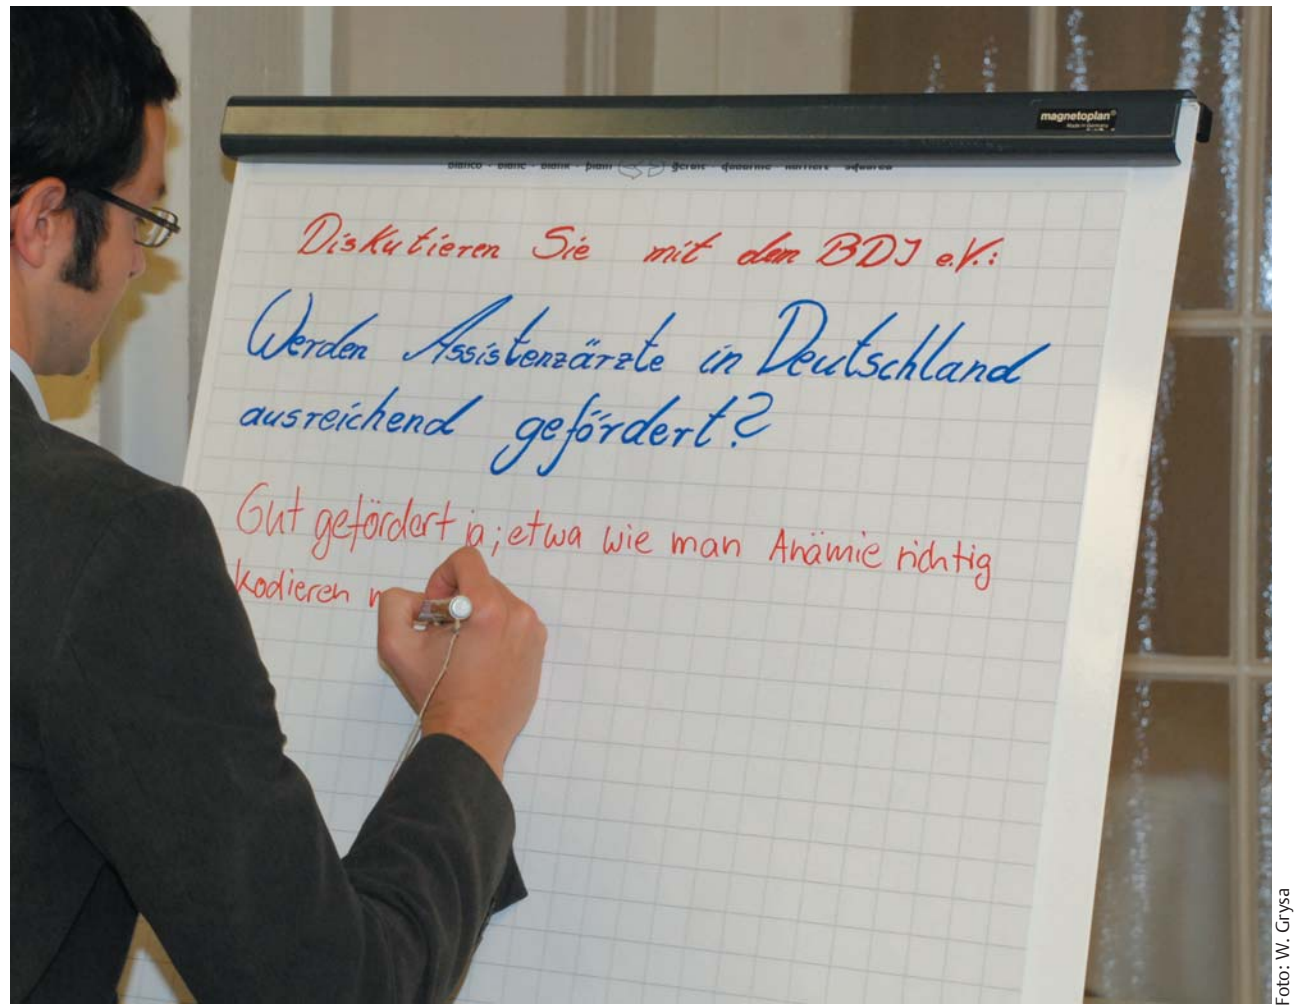 magnetoplan®
Made in Germany
blanco - blanc - blank - plain
Diskutieren Sie mit dem BDI e.V.:
Werden Assistenzärzte in Deutschland
ausreichend gefördert?
Gut gefördert ja; etwa wie man Anämie richtig
kodieren
Foto: W. Grysa